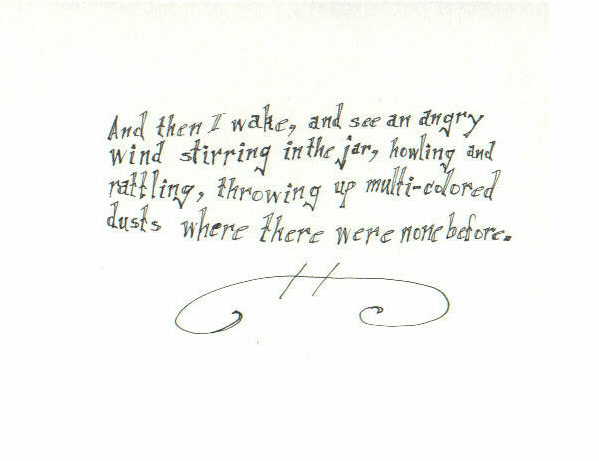 And then I wake, and see an angry
wind stirring in the jar, howling and
rattling, throwing up multi-colored
dusts where there were none before.